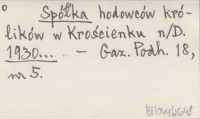 Spółka hodowców kró-
lików w Krościenku n/D.
1930... — Gaz. Podh. 18,
nr 5.